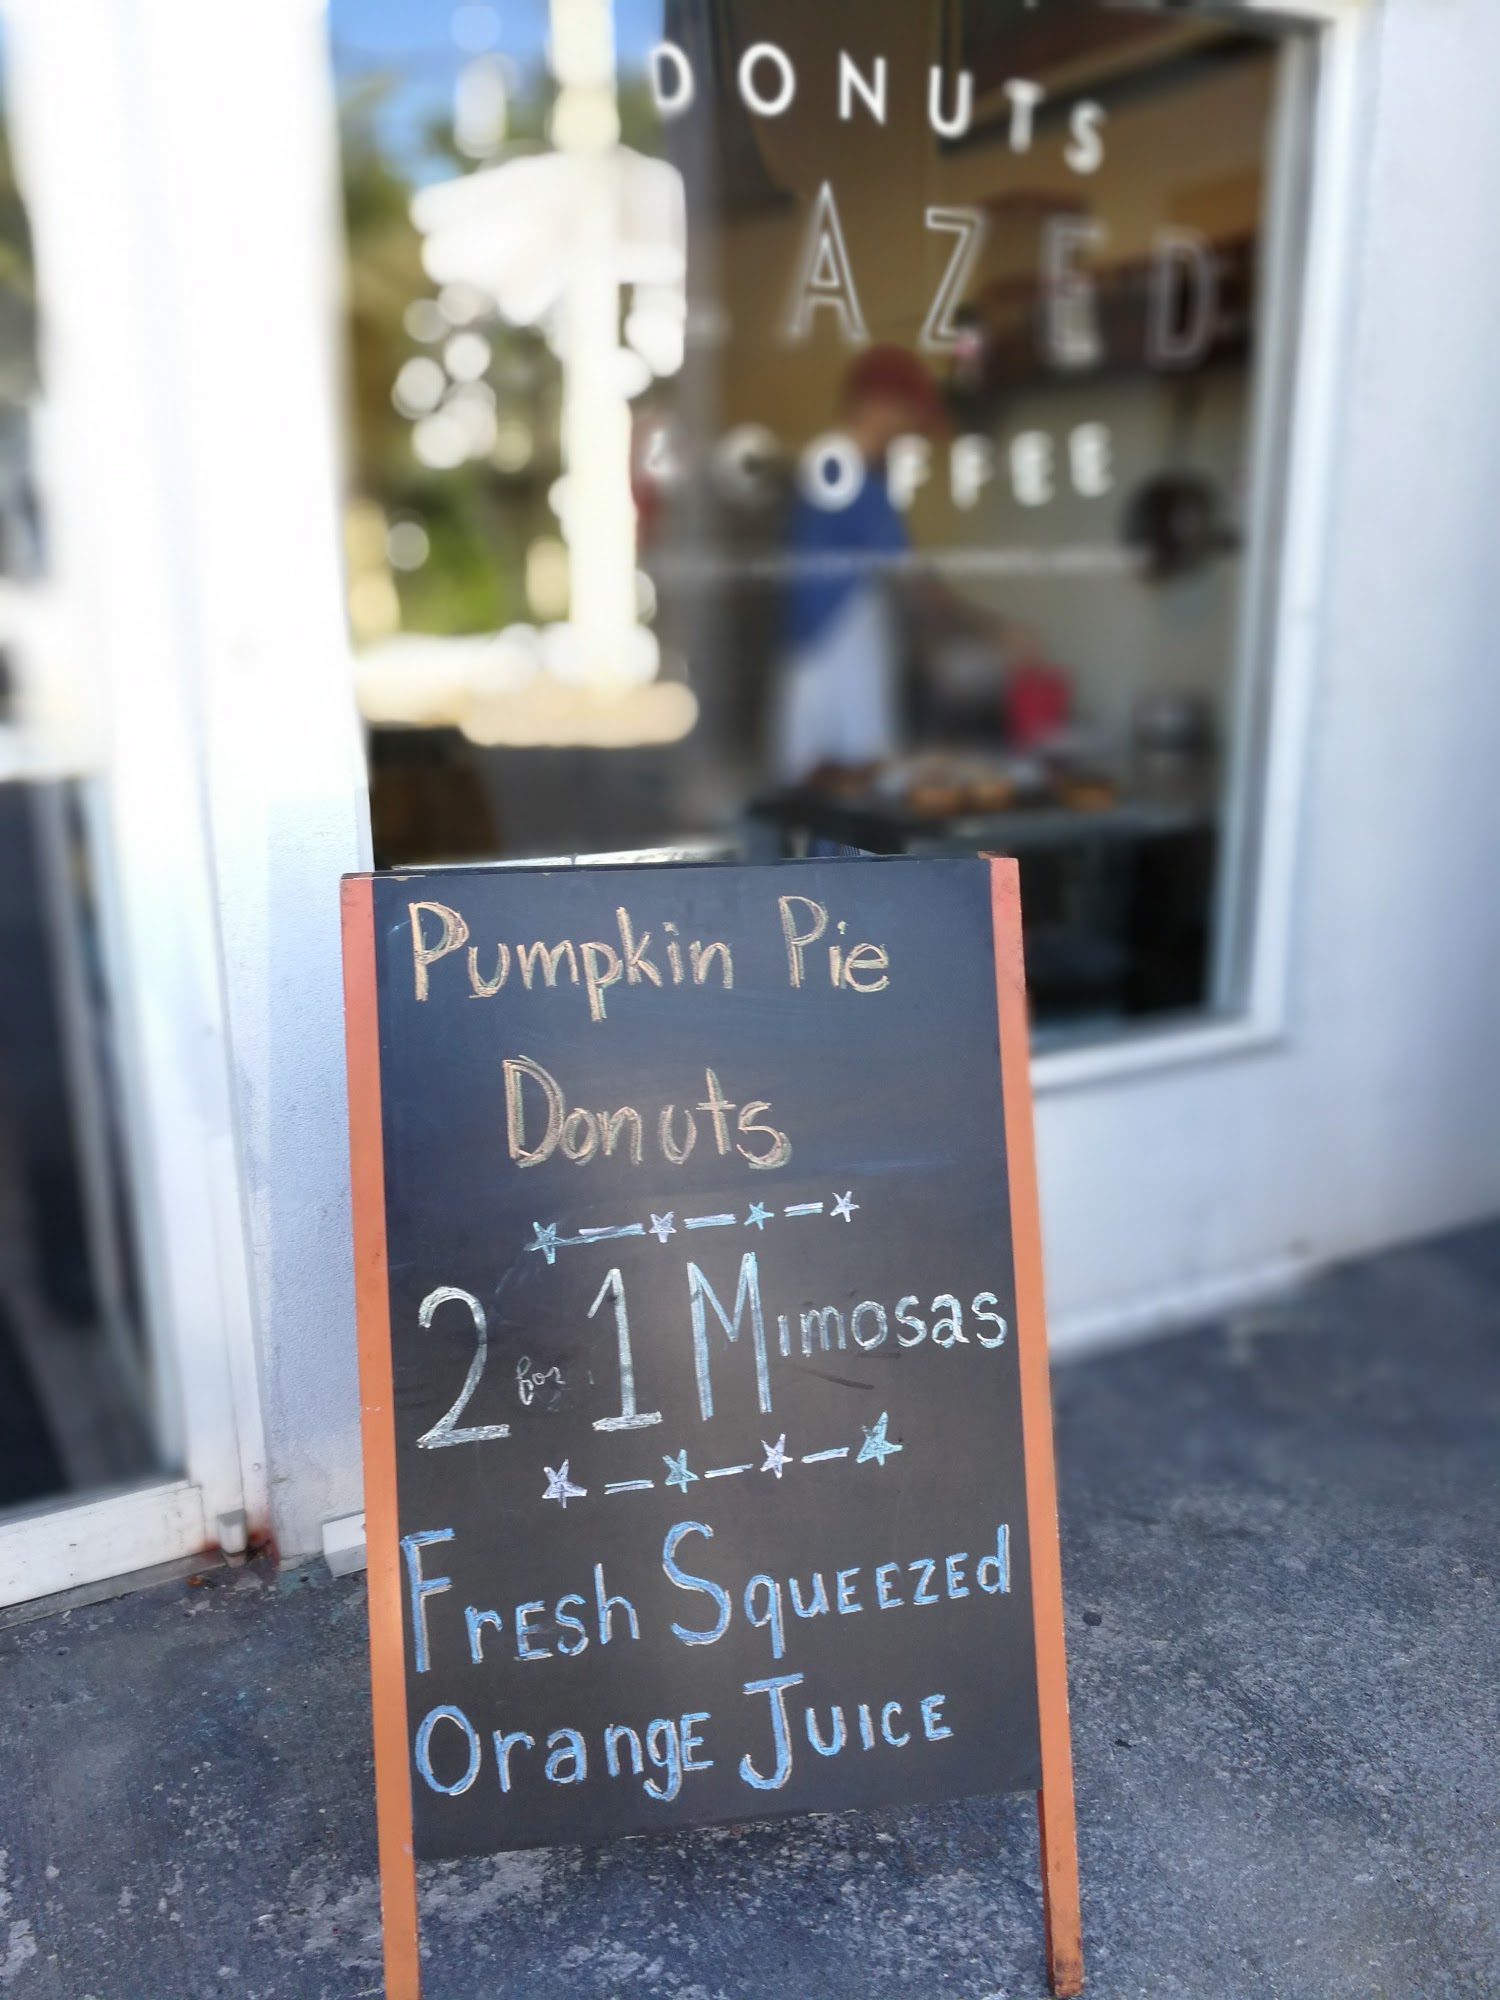 DONUTS
AZED
& COFFEE
Pumpkin Pie
Donuts
2 for 1 Mimosas
FrESh SquEEZEd
OrangE JUICE